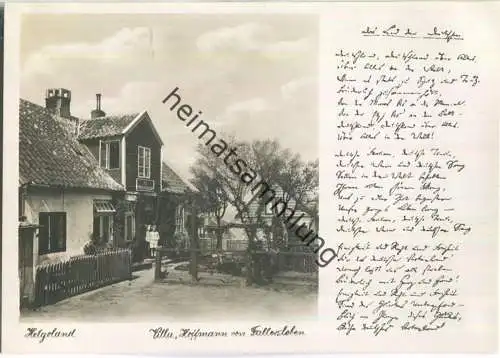 Das Lied der Deutschen
Deutschland, Deutschland über alles,
über alles in der Welt,
Wenn es stets zu Schutz und Trutze
Brüderlich zusammenhält,
Von der Maas bis an die Memel,
Von der Etsch bis an den Belt –
Deutschland, Deutschland über alles,
Über alles in der Welt!
Deutsche Frauen, deutsche Treue,
Deutscher Wein und deutscher Sang
Sollen in der Welt behalten
Ihren alten schönen Klang,
Einigkeit und Recht und Freiheit
Für das deutsche Vaterland!
Danach lasst uns alle streben
Brüderlich mit Herz und Hand!
Einigkeit und Recht und Freiheit
Sind des Glückes Unterpfand –
Blüh im Glanze dieses Glückes,
Blühe deutsches Vaterland.
heimatsammlung.de
Helgoland
Villa, Hoffmann von Fallersleben